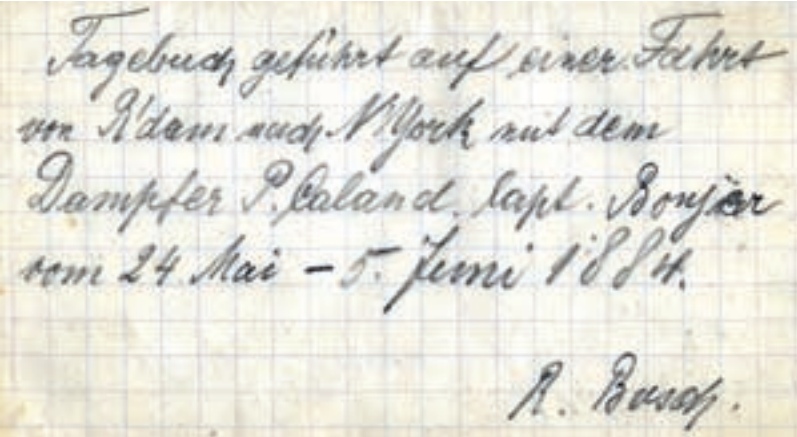 Tagebuch geführt auf einer Fahrt
von R'dam nach N'York mit dem
Dampfer P. Caland. Capt. Bonjer
vom 24 Mai – 5. Juni 1884.
R. Busch.